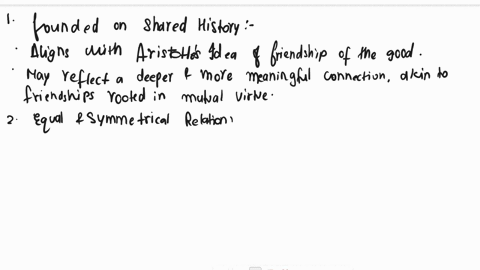 1. founded on shared History:-
· Aligns with Aristotle's Idea of friendship of the good.
· May reflect a deeper & more meaningful connection, akin to
friendships rooted in mutual virtue.
2. Equal & Symmetrical Relation